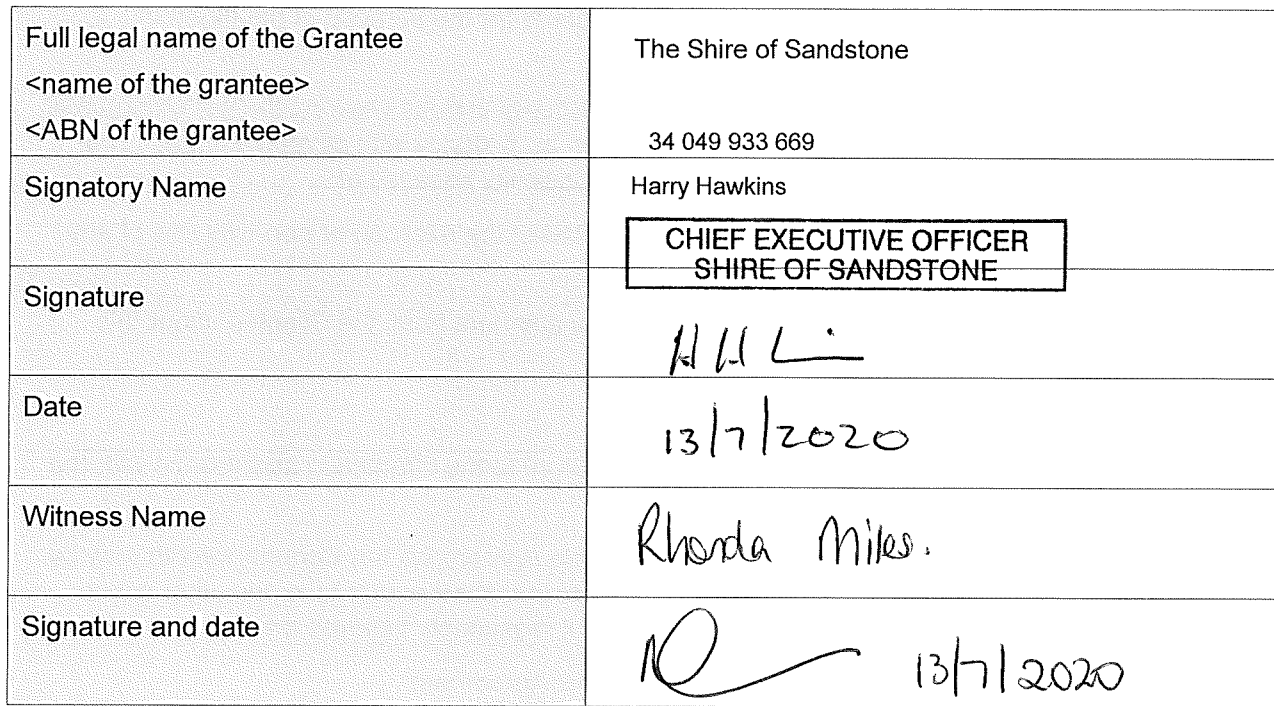 Full legal name of the Grantee
<name of the grantee>
<ABN of the grantee>
The Shire of Sandstone
34 049 933 669
Signatory Name
Harry Hawkins
CHIEF EXECUTIVE OFFICER
SHIRE OF SANDSTONE
Signature
Date
13/7/2020
Witness Name
Rhonda Miles.
Signature and date
13/7/2020